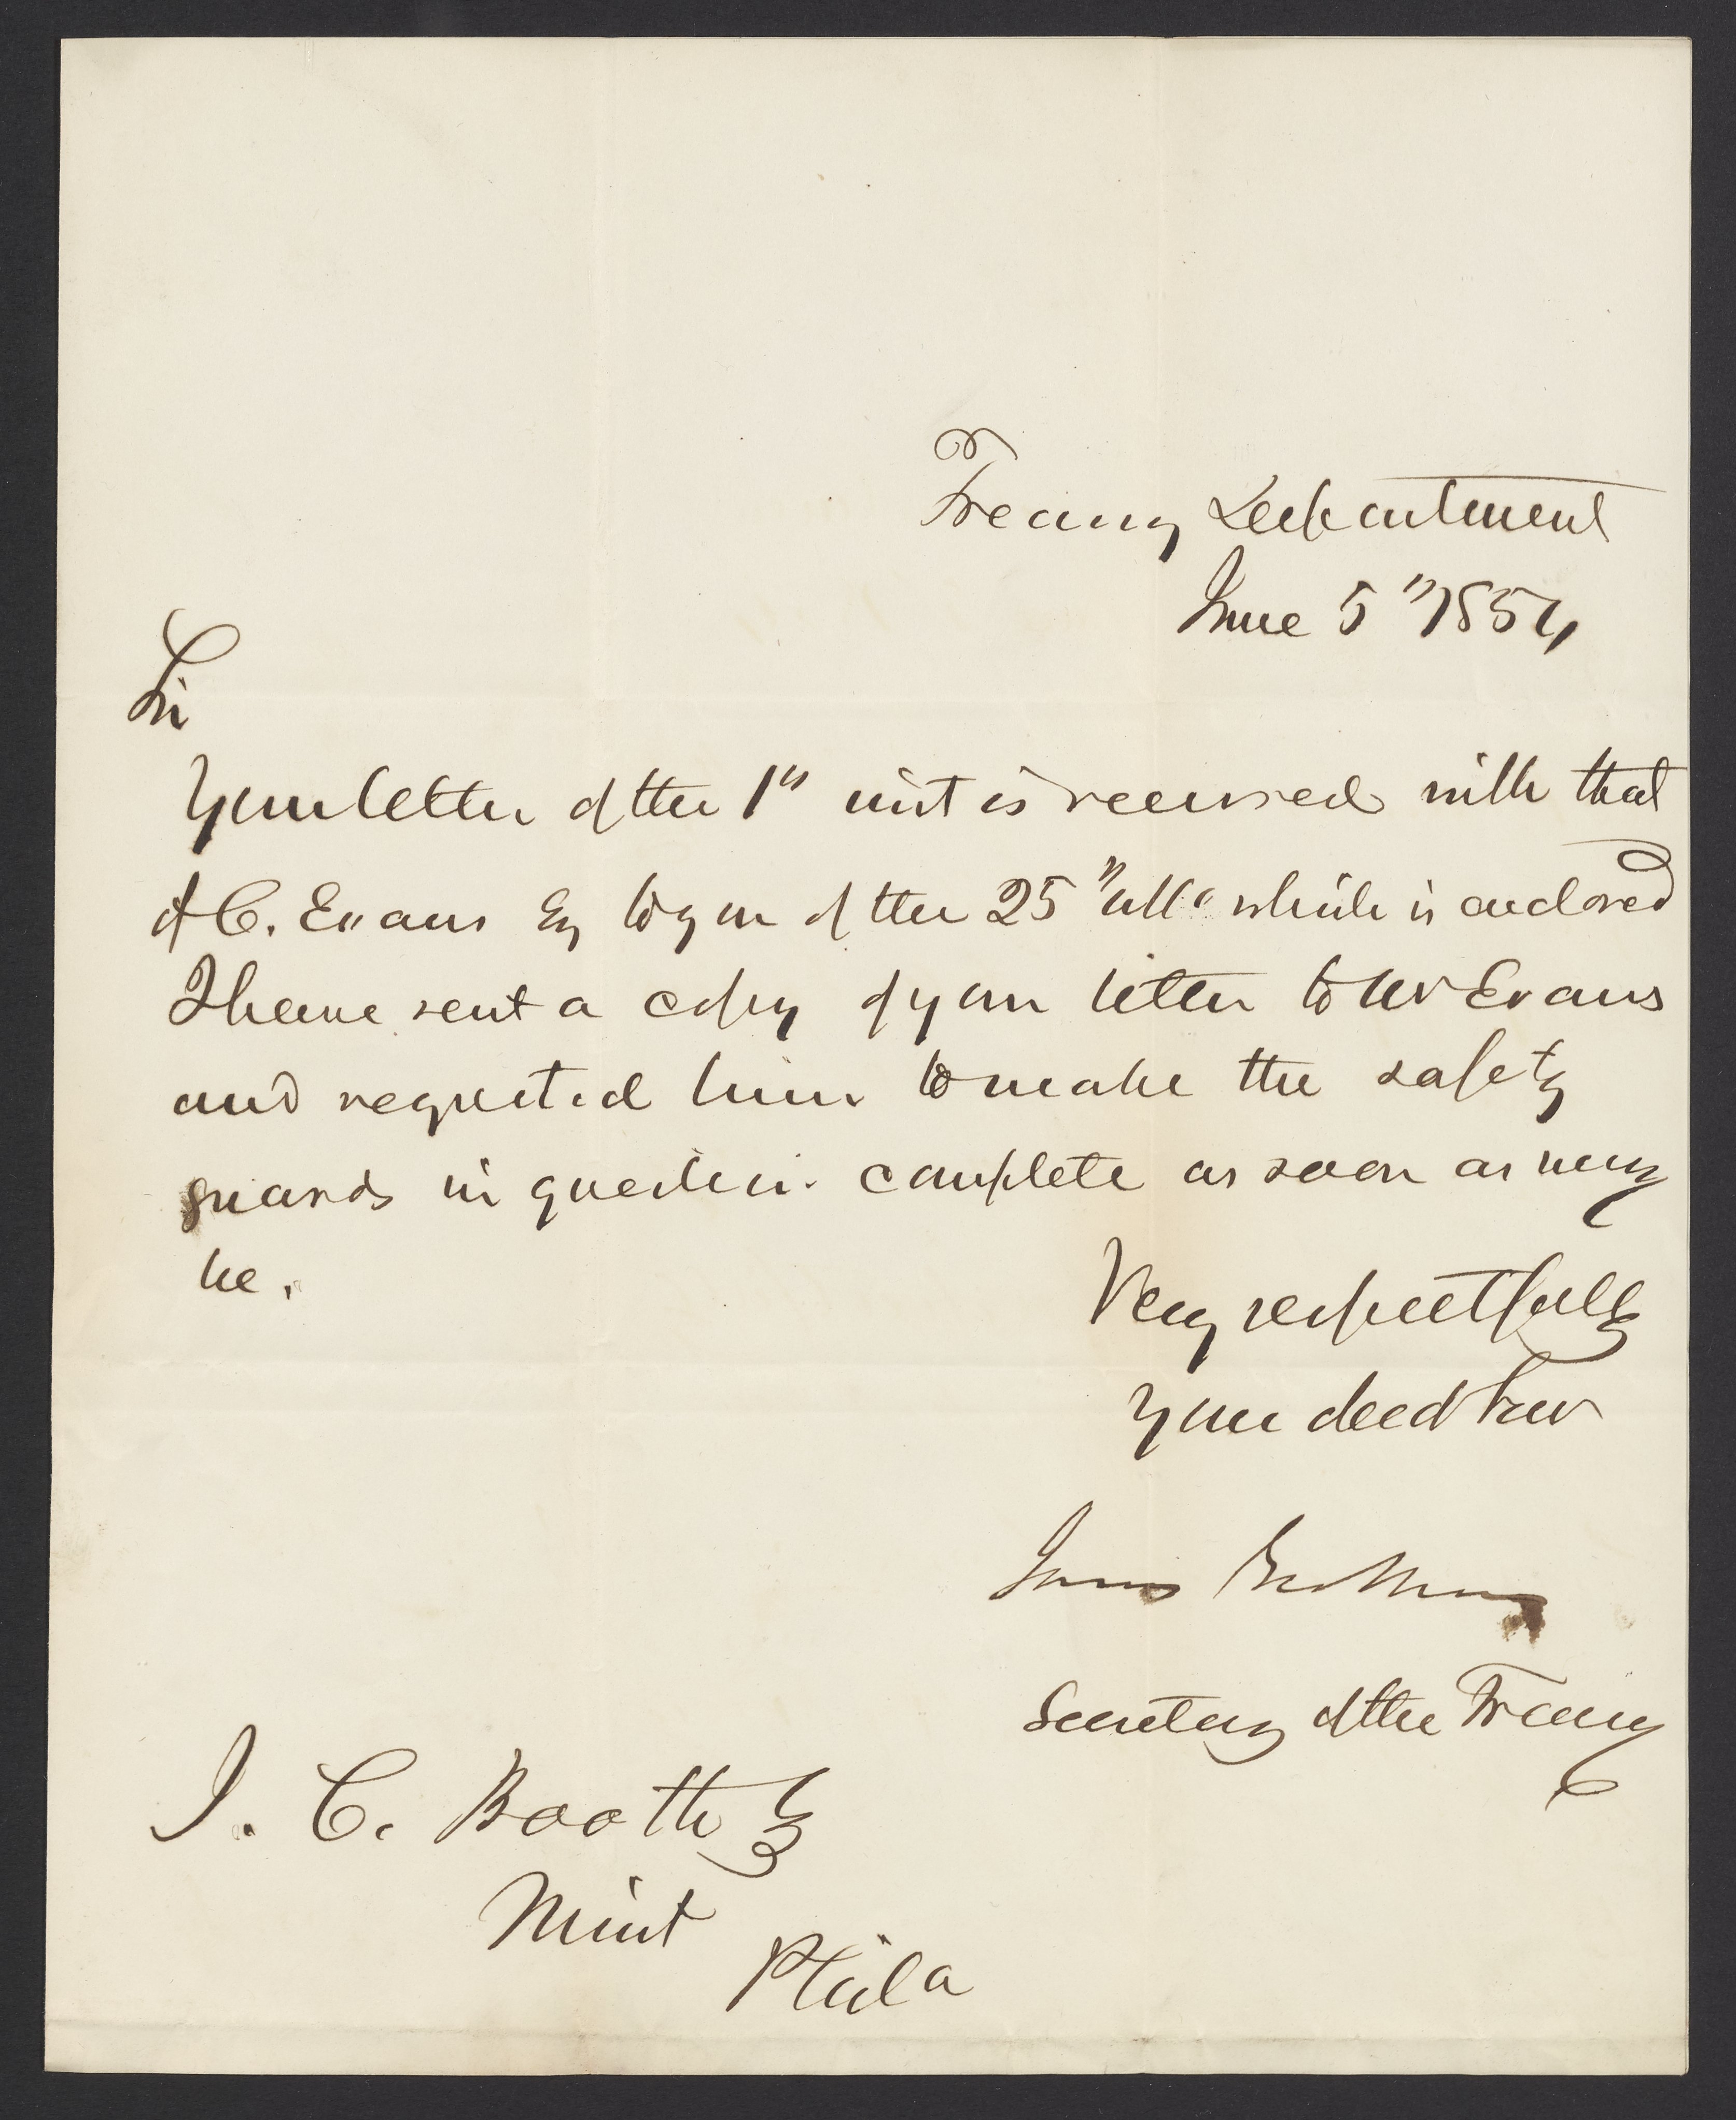 Treasury Department
June 5" 1854
Sir
Your letter of the 1" inst is received with that
of C. Evans Esq to you of the 25" ulto which is enclosed
I have sent a copy of your letter to Mr Evans
and requested him to make the safety
guards in question complete as soon as may
be.
Very respectfully
Your obedt Serv
James Guthrie
Secretary of the Treasury
J. C. Booth Esq
Mint
Phila